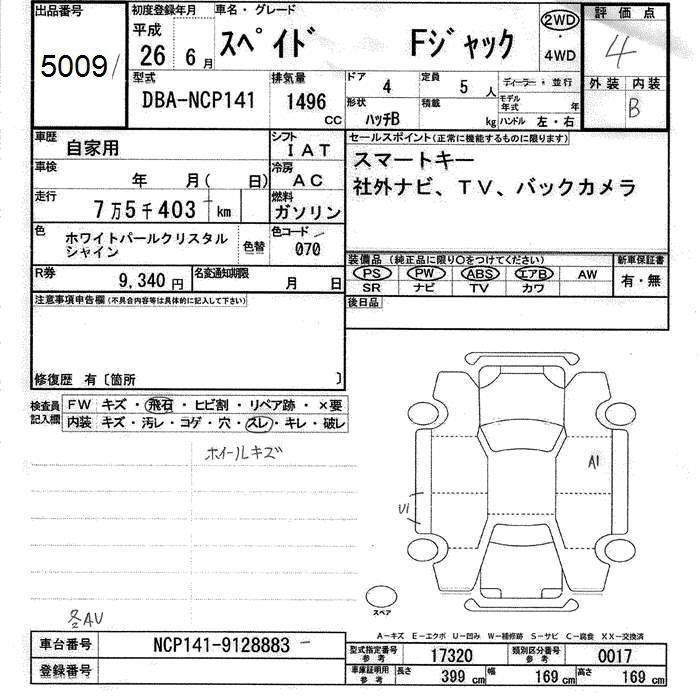 出品番号 5009
初度登録年月 平成 26 6月
車名・グレード スペイド Fジャック
2WD ・ 4WD
評価点 4
型式 DBA-NCP141
排気量 1496 CC
ドア 4 定員 5人
形状 ハッチB 積載 kg
ディーラー・並行
モデル年式 年
ハンドル 左・右
外装 内装 B
車歴 自家用
シフト IAT
車検 年 月( 日)
冷房 AC
走行 7万5千403 km
燃料 ガソリン
色 ホワイトパールクリスタルシャイン 色替
色コード 070
R券 9,340円
名変通知期限 月 日
セールスポイント(正常に機能するものに限ります)
スマートキー
社外ナビ、TV、バックカメラ
装備品(純正品に限り○をつけてください) 新車保証書
PS PW ABS エアB AW 有・無
SR ナビ TV カワ
後日品
注意事項申告欄(不具合内容等は具体的に記入して下さい)
修復歴 有〔箇所 〕
検査員記入欄
FW キズ・飛石・ヒビ割・リペア跡・×要
内装 キズ・汚レ・コゲ・穴・スレ・キレ・破レ
ホイールキズ
A1
U1
スペア
各AU
A－キズ E－エクボ U－凹み W－補修跡 S－サビ C－腐食 XX－交換済
車台番号 NCP141-9128883
登録番号
型式指定番号 参考 17320 類別区分番号 参考 0017
車庫証明用 参考 長さ 399 cm 幅 169 cm 高さ 169 cm